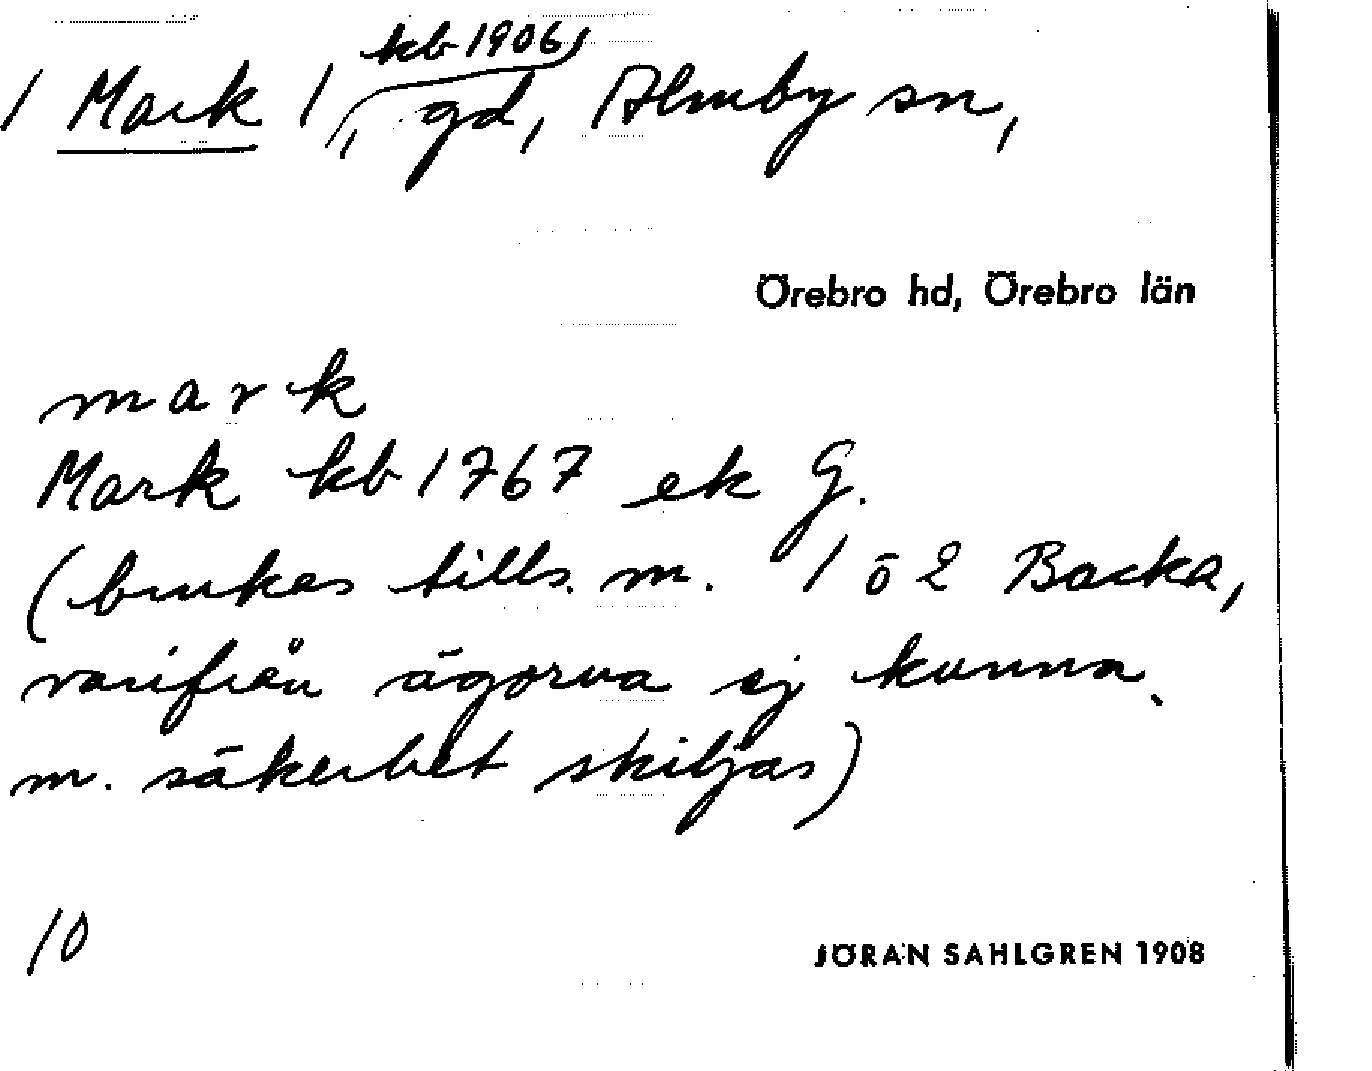 kb 1906
1 Mark 1, gd, Almby sn,
Örebro hd, Örebro län
mark
Mark kb 1767 ek G.
(brukas tills. m. 1 o 2 Backa,
varifrån ägorna ej kunna
m. säkerhet skiljas)
10
JÖRAN SAHLGREN 1908